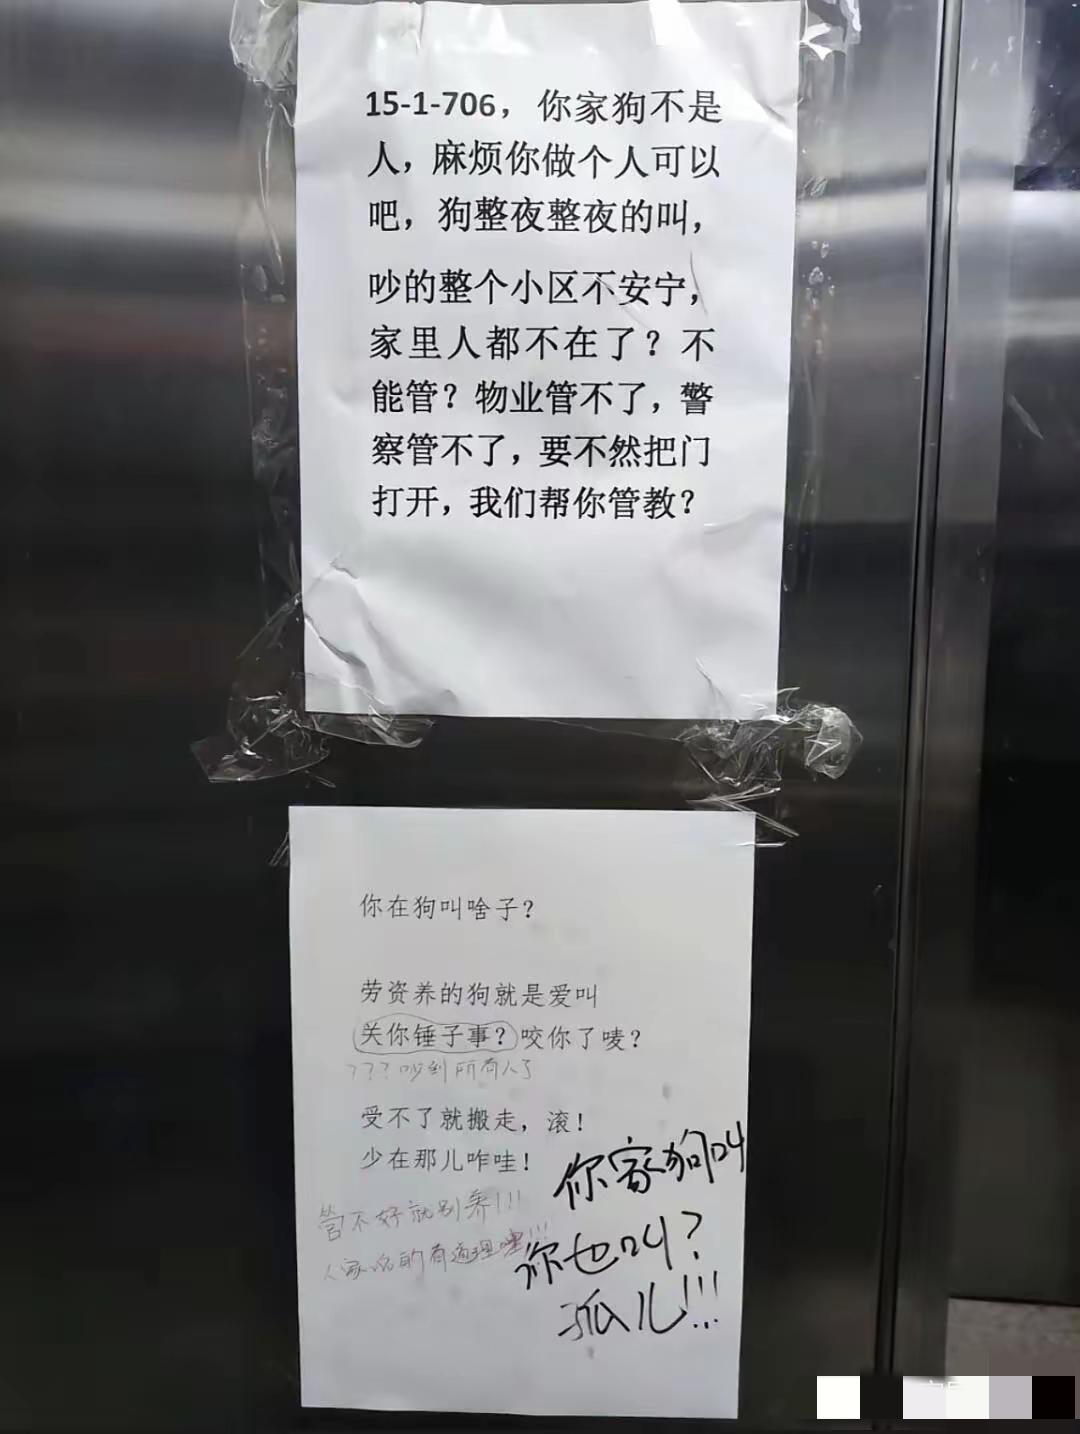 15-1-706，你家狗不是
人，麻烦你做个人可以
吧，狗整夜整夜的叫，
吵的整个小区不安宁，
家里人都不在了？不
能管？物业管不了，警
察管不了，要不然把门
打开，我们帮你管教？
你在狗叫啥子？
劳资养的狗就是爱叫
关你锤子事？咬你了唛？
？？？吵到所有人了
受不了就搬走，滚！
少在那儿咋哇！
管不好就别养！！！
人家说的有道理嘿！！！
你家狗叫
你也叫？
孤儿！！！